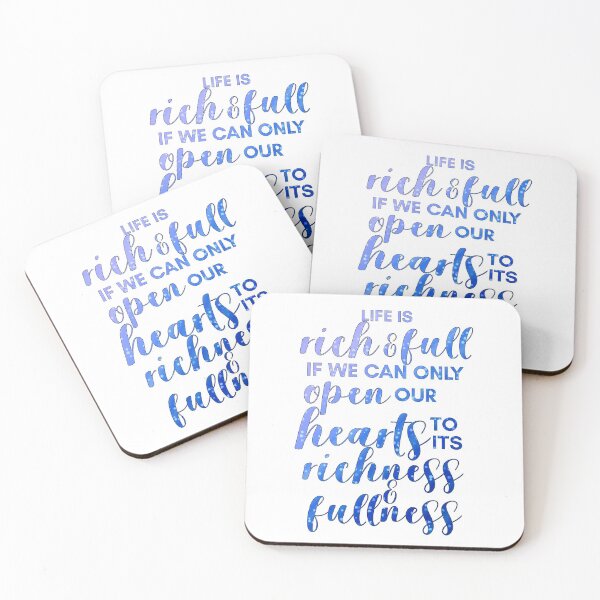 LIFE IS
rich & full
IF WE CAN ONLY
open OUR
TO
ITS
LIFE IS
rich & full
IF WE CAN ONLY
open OUR
hearts TO
ITS
richness
LIFE IS
rich & full
IF WE CAN ONLY
open OUR
hearts TO
ITS
richness
&
fullness
LIFE IS
rich & full
IF WE CAN ONLY
open OUR
hearts TO
ITS
richness
&
fullness